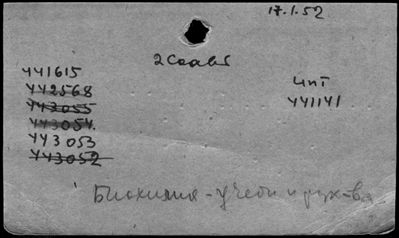 17.1.52
441615
442568
443055
443054
443053
443052
чит
441141
Биохимия - учебн и рук-ва